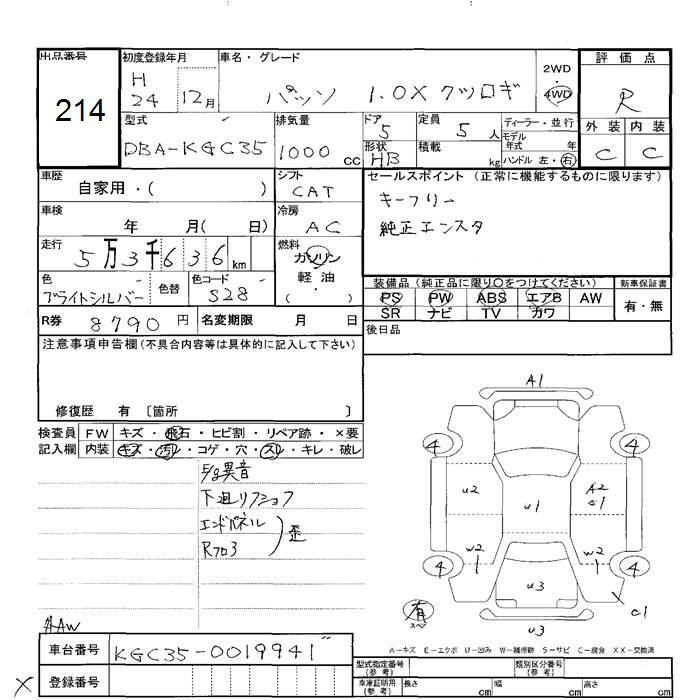 出品番号
214
初度登録年月
H 24 12月
車名・グレード
パッソ 1.0X クツロギ
2WD
4WD
評価点
R
外装 内装
C C
型式
DBA-KGC35
排気量
1000 cc
ドア
5
形状
HB
定員
5 人
積載
kg
ディーラー・並行
モデル
年式 年
ハンドル 左・右
車歴
自家用・( )
シフト
CAT
セールスポイント (正常に機能するものに限ります)
キーフリー
純正エンスタ
車検
年 月( 日)
冷房
AC
走行
5万3千636km
燃料
ガソリン
軽油
( )
色
ブライトシルバー
色替
色コード
S28
装備品 (純正品に限り○をつけてください)
PS PW ABS エアB AW
SR ナビ TV カワ
新車保証書
有・無
R券 8790円
名変期限 月 日
後日品
注意事項申告欄(不具合内容等は具体的に記入して下さい)
修復歴 有 〔箇所 〕
検査員 FW キズ・飛石・ヒビ割・リペア跡・×要
記入欄 内装 キズ・汚レ・コゲ・穴・スレ・キレ・破レ
異音
エンドパネル
歪
A1
4 4
u2 u1 A2
c1
w2 w2
4 4
u3
有
スペア
c1
u3
AAW
A-キズ E-エクボ U-凹み W-補修跡 S-サビ C-腐食 XX-交換済
車台番号 KGC35-0019941
登録番号
X
型式指定番号
(参考)
類別区分番号
(参考)
車庫証明用
(参考)
長さ cm 幅 cm 高さ cm